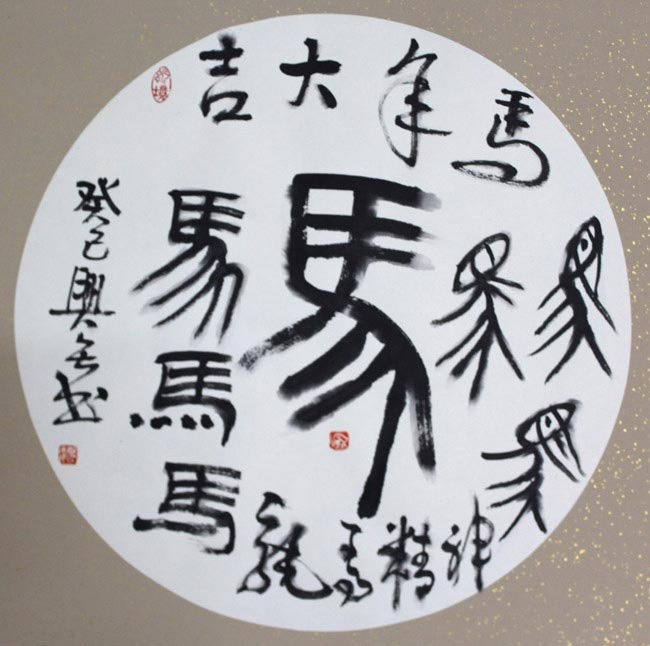 馬年大吉
馬
馬
馬
馬
馬
馬
馬
龍馬精神
癸巳興书